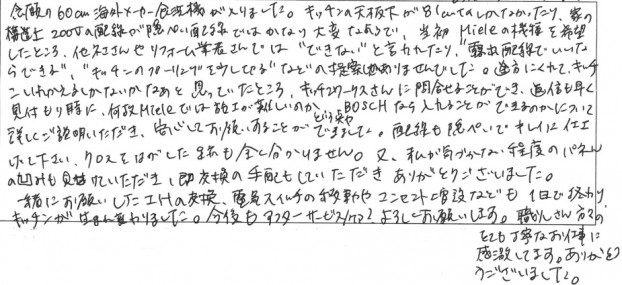 念願の60cm海外メーカー食洗機が入りました。キッチンの天板下が81cmでしかなかったり、家の
構造上200Vの配線が隠ぺい配線ではかなり大変な点で、当初Mieleの機種を希望
したところ、他社さんやリフォーム業者さんでは"できない"と言われたり、"露出配線でいいな
らできる"、"キッチンのフローリングを少しけずる"などの提案しかありませんでした。途方にくれて、キッチ
ンいれかえるしかないかなあと思っていたところ、キッチンワークスさんに問合せることができ、返信も早く
見積もり時に、何故Mieleでは施工が難しいのか、BOSCHなら入れることができるのかについて
詳しくご説明いただき、安心してお願いすることができました。配線も隠ぺいでキレイに仕上
げて下さい、クロスをはがした跡も全く分かりません。又、私が気づかない程度のパネル
の凹みも見つけていただき、即交換の手配もしていただきありがとうございました。
一緒にお願いしたIHの交換、電気スイッチの移動やコンセント増設なども1日で終わり、
キッチンが生まれ変わりました。今後もアフターサービスよろしくお願いします。職人さん方の、
とても丁寧なお仕事に
感激してます。ありがと
うございました。